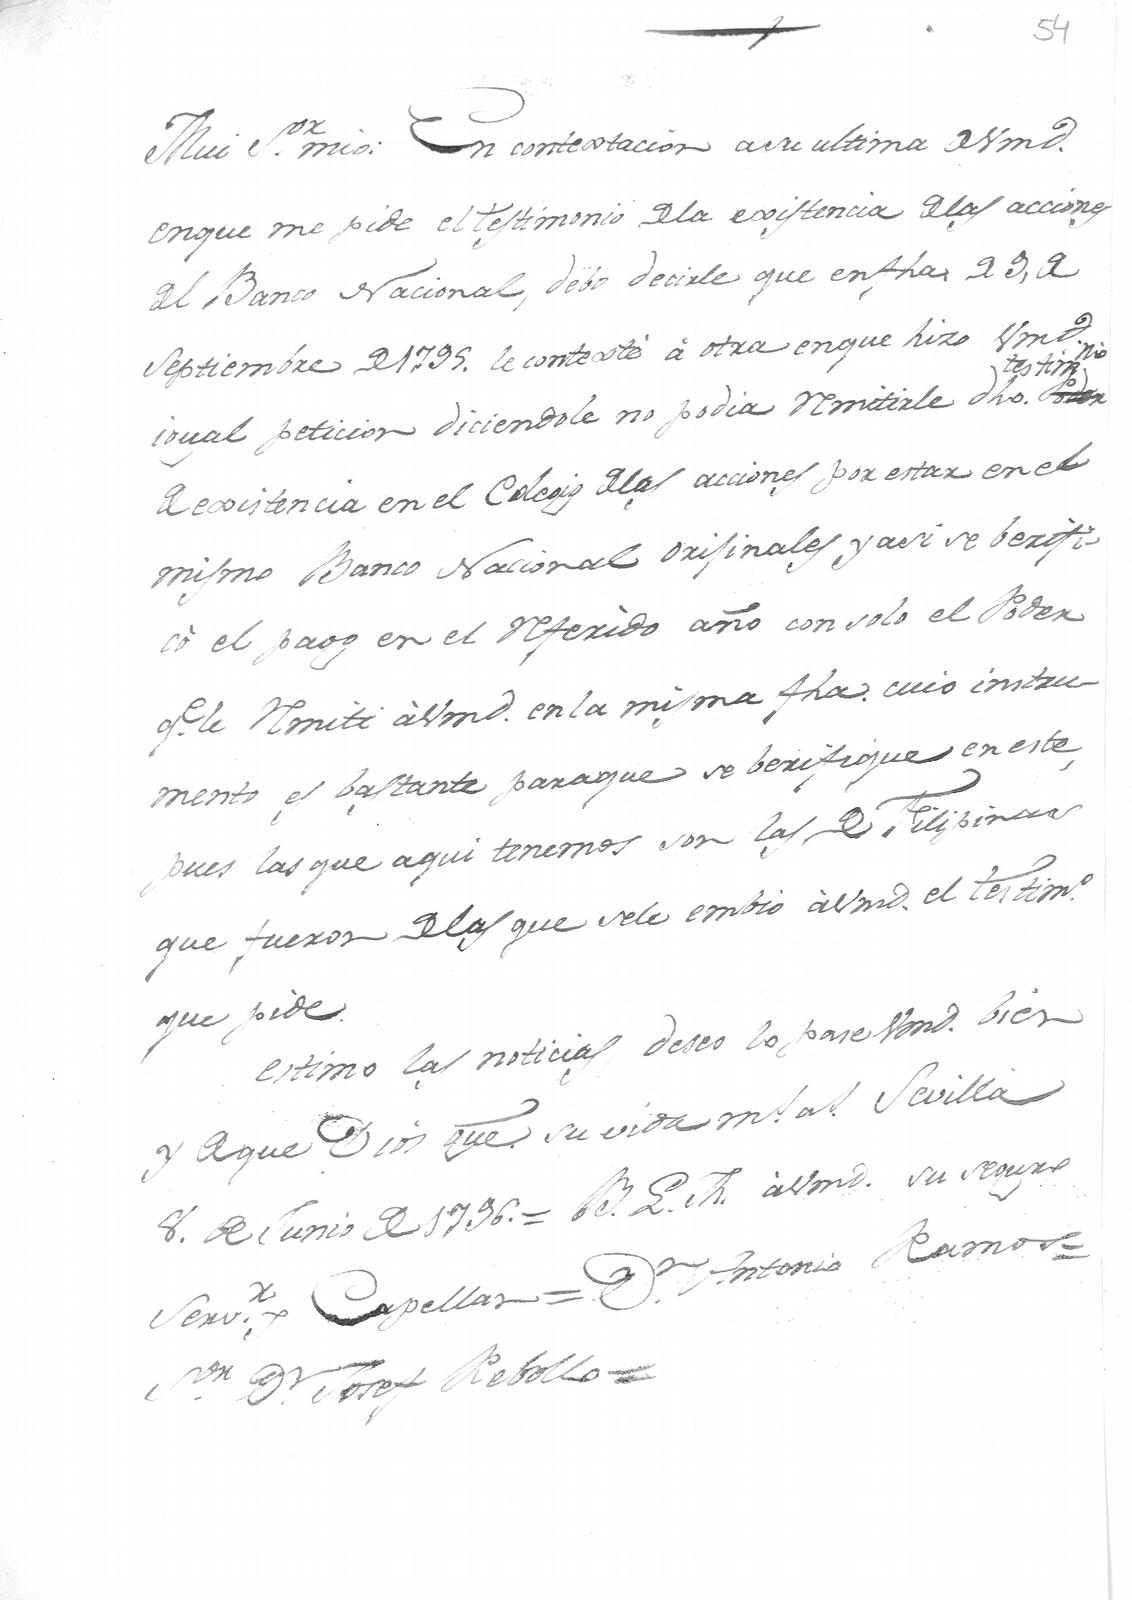 54
Mui S.or mio: En contextacion a su ultima de Vmd.
enque me pide el testimonio dela existencia delas acciones
del Banco Nacional, debo decirle que en fha. de 9, de
Septiembre de 1795. le contexté à otra enque hizo Vmd.
testimnio
igual peticion diciendole no podia rmitirle dho. Poder
de existencia en el Colegio delas acciones por estar en el
mismo Banco Nacional orijinales, y asi se berifi-
cò el pago en el rferido año con solo el Poder
q.e le rmiti à Vmd. en la misma fha. cuio instru-
mento es bastante paraque se berifique en este,
pues las que aqui tenemos son las de Filipinas
que fueron delas que sele embió à Vmd. el testim.o
que pide.
estimo las noticias, deseo lo pase Vmd. bien
y de que Dios gue. su vida m.s a.s Sevilla
8. de Junio de 1796.= B. L. M. à Vmd. su seguro
Serv.r y Capellan = D.n Antonio Ramos =
S.or D.n Josef Rebollo =